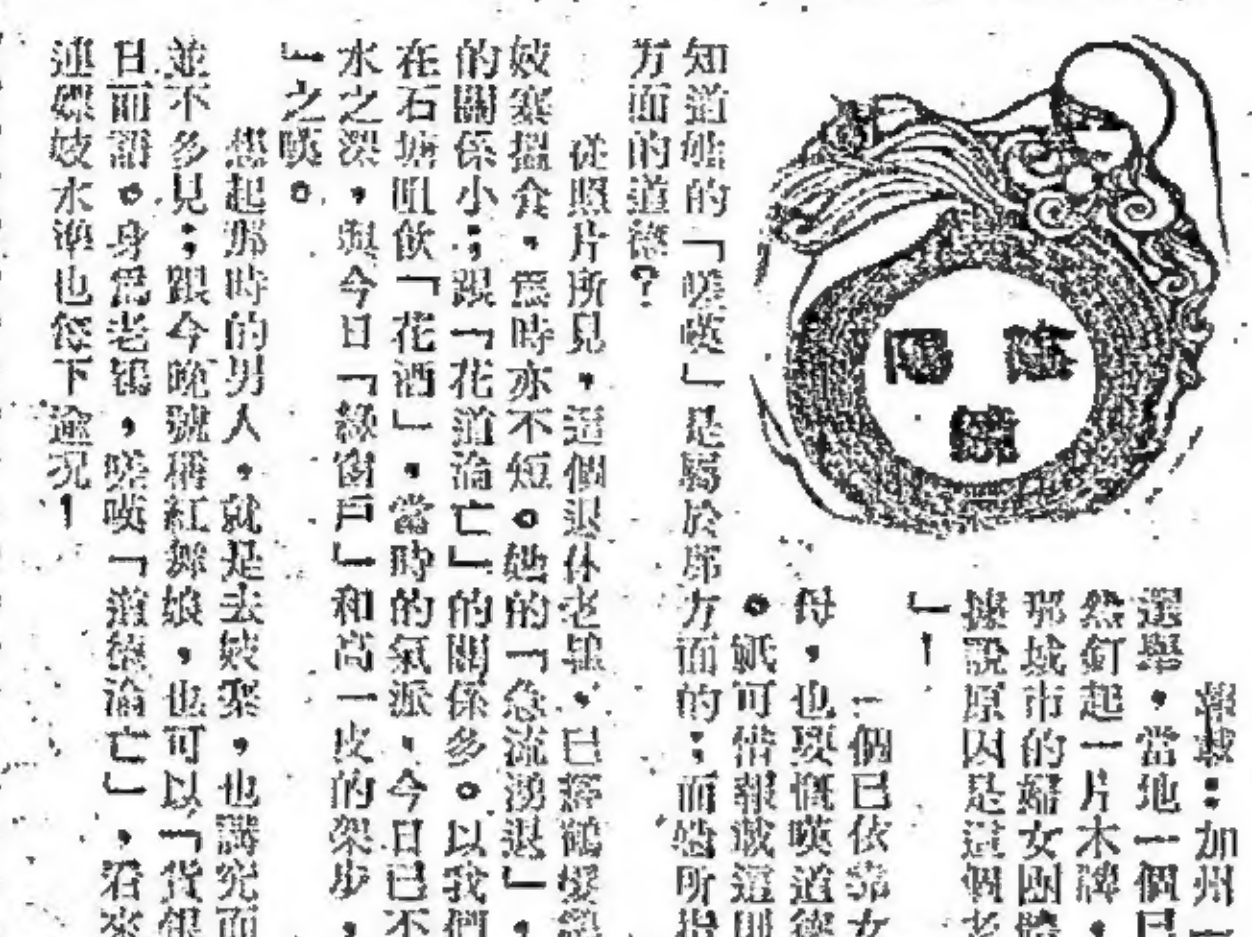 陰陽鏡
報載：加州
選舉，當地一個已
然釘起一片木牌，
那城市的婦女團體
據說原因是這個老
」！
一個已依靠女
母，也要慨嘆道德
。祇可惜報載這則
知道她的「嗟嘆」是屬於那方面的；而她所指
方面的道德？
從照片所見，這個退休老鴇，已
妓寨搵食，為時亦不短。她的「急流湧退」，
的關係小；跟「花道淪亡」的關係多。以我們
在石塘咀飲「花酒」，當時的氣派，今日已不
水之深，與今日「綠窗戶」和高一皮的架步，
」之嘆。
想起那時的男人，就是去妓寨，也講究面
並不多見；跟今晚號稱紅舞娘，也可以「貨銀
日而語。身為老鴇，嗟嘆「道德淪亡」，看來
連媒妓水準也每下逾況！